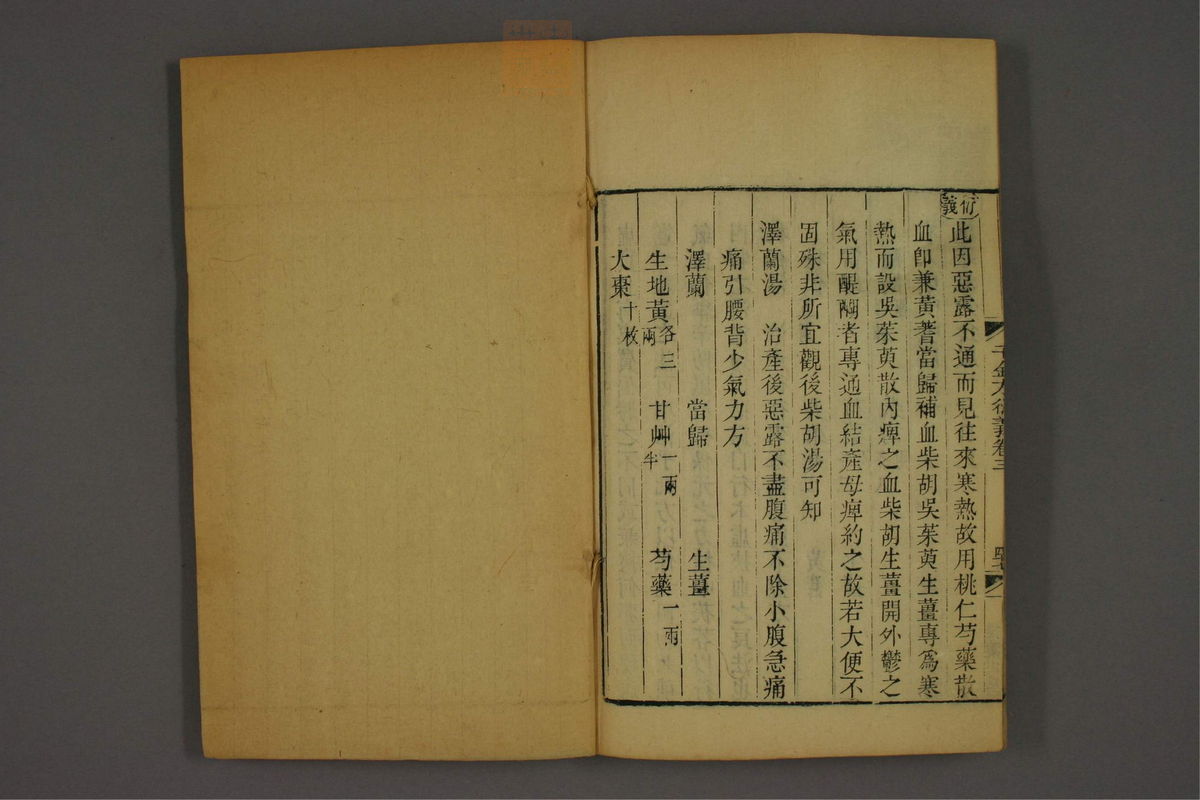 衍義
此因惡露不通而見往來寒熱故用桃仁芍藥散
血卽兼黃耆當歸補血柴胡吳茱萸生薑專爲寒
熱而設吳茱萸散內痺之血柴胡生薑開外鬱之
氣用醍醐者專通血結產母痺約之故若大便不
固殊非所宜觀後柴胡湯可知
澤蘭湯　治產後惡露不盡腹痛不除小腹急痛
痛引腰背少氣力方
澤蘭　當歸　生薑
生地黃各三兩　甘艸一兩半　芍藥一兩
大棗十枚
千金方衍義卷三